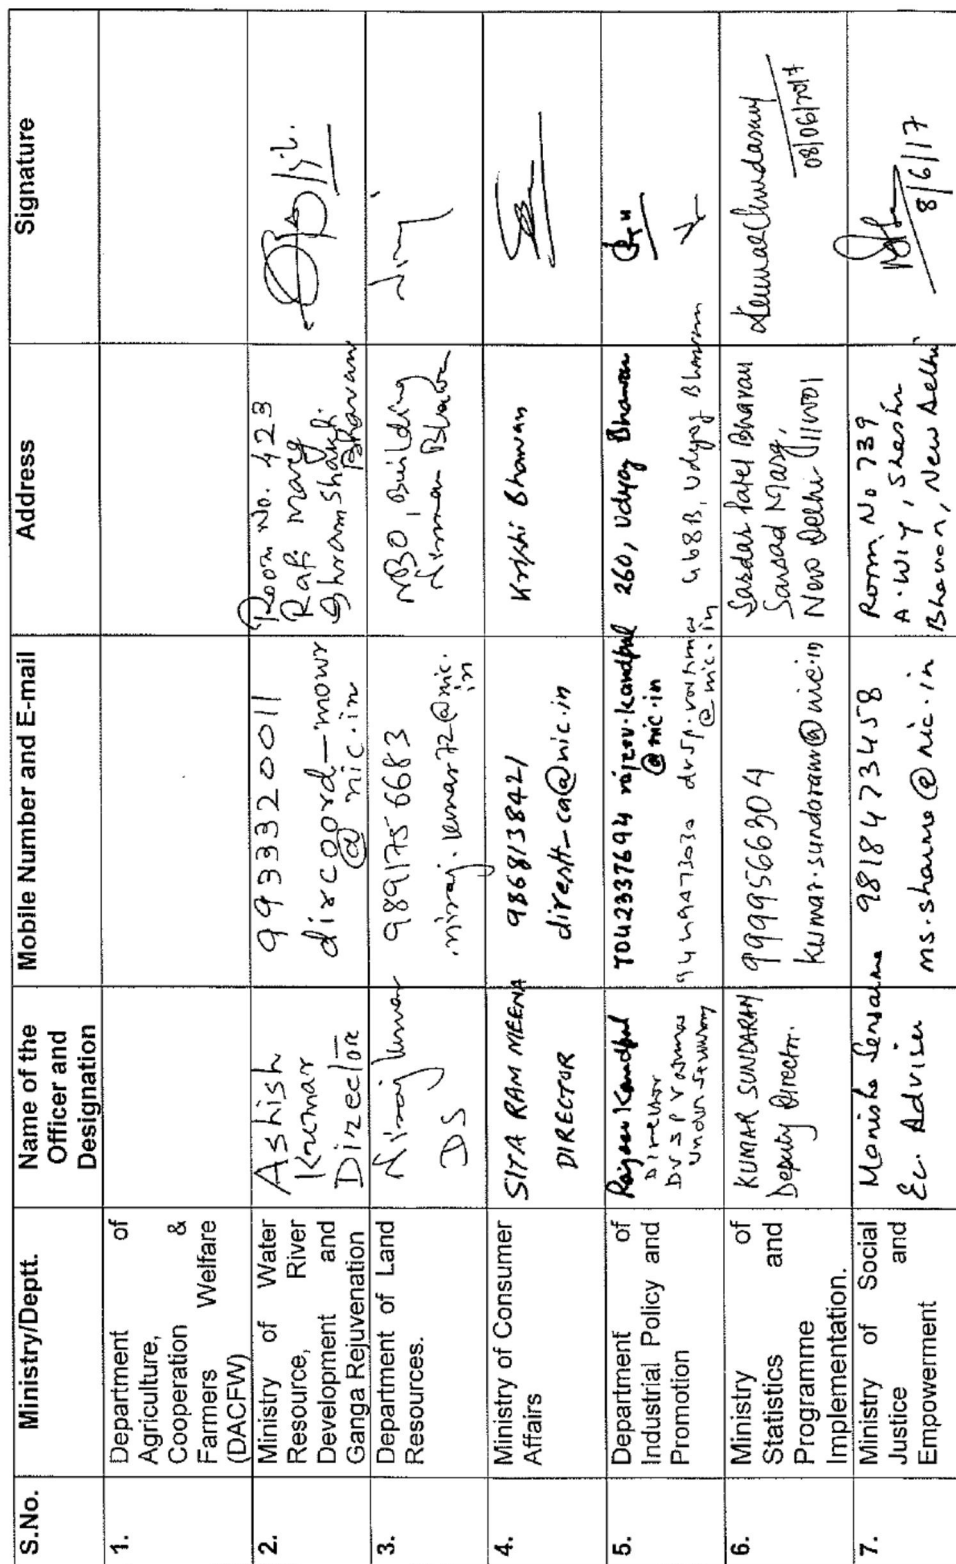 S.No.
Ministry/Deptt.
Name of the
Officer and
Designation
Mobile Number and E-mail
Address
Signature
1.
Department of
Agriculture,
Cooperation &
Farmers Welfare
(DACFW)
2.
Ministry of Water
Resource, River
Development and
Ganga Rejuvenation
Ashish
Kumar
Director
9933320011
dircoord-mowr
@nic.in
Room No. 423
Rafi Marg
Shram Shakti
Bhavan
3.
Department of Land
Resources.
Niraj Kumar
DS
9891756683
niraj.kumar72@nic.
in
NBO, Building
Nirman Bhawan
4.
Ministry of Consumer
Affairs
SITA RAM MEENA
DIRECTOR
9868138421
direstt-ca@nic.in
Krishi Bhawan
5.
Department of
Industrial Policy and
Promotion
Kandpal
Director
Under Secretary
7042337694
kandpal
@nic.in
9449473030
@nic.in
260, Udyog Bhawan
468B, Udyog Bhawan
6.
Ministry of
Statistics and
Programme
Implementation.
KUMAR SUNDARAM
Deputy Director.
9999566304
kumar.sundaram@nic.in
Sardar Patel Bhavan
Sansad Marg,
New Delhi 110001
08/06/2017
7.
Ministry of Social
Justice and
Empowerment
Manisha Sensarma
Ec. Adviser
9818473458
@nic.in
Room No 739
A-Wing, Shastri
Bhawan, New Delhi
8/6/17